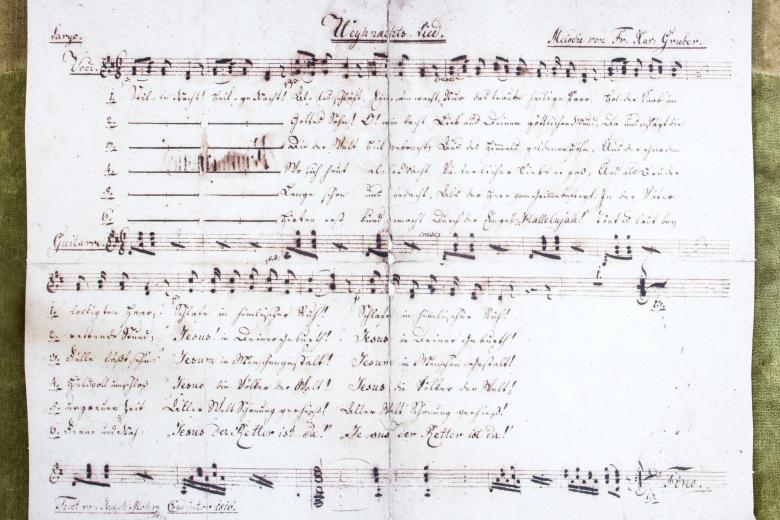 Largo. Weyhnachts-Lied. Melodie von Fr. Xav. Gruber.
Voci.
1. Stille Nacht! Heilige Nacht! Alles schläft, Einsam wacht, Nur das traute heilige Paar, Holder Knab' im
2. Gottes Sohn! O! wie lacht Lieb' aus Deinem göttlichen Mund, Da uns schlägt die
3. Die der Welt Heil gebracht, Aus des Himmels goldenen Höhn,
4. Wo sich heut alle Macht Väterlicher Liebe ergoß, Und als Bruder
5. Lange schon uns bedacht, Als der Herr vom Grimme befreyt, In der Väter
6. Hirten erst kund gemacht Durch der Engel Hallelujah! Tönt es laut bey
Guitarre
cresc.
1. lockigten Haar; Schlafe in himlischer Ruh! Schlafe in himlischer Ruh!
2. rettende Stund; Jesus! in Deiner Geburth! Jesus in Deiner Geburth!
3. Fülle läßt sehn: Jesum in Menschengestalt! Jesum in Menschengestalt!
4. huldvoll umschloß Jesus die Völker der Welt! Jesus die Völker der Welt!
5. urgrauer Zeit Aller Welt Schonung verhieß! Aller Welt Schonung verhieß!
6. Ferne und Nah: "Jesus der Retter ist da!" "Jesus der Retter ist da!"
Fine.
Text von Joseph Mohr, Coadjutor 1816.